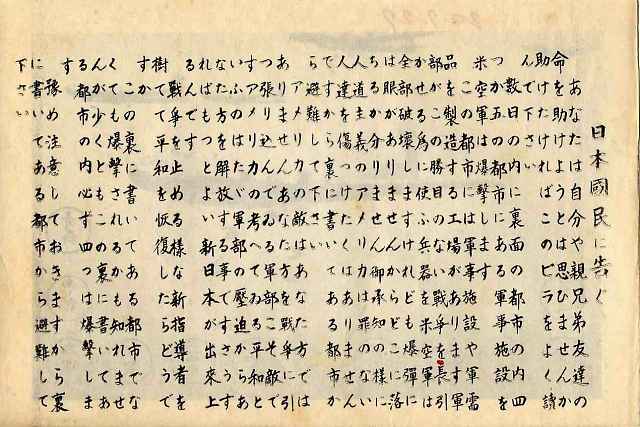 日本國民に告ぐ
あなたは自分や親兄弟友達の
命を助けようとは思ひませんか
助けたければこのビラをよく讀
んで下さい
数日の内に裏面の都市の内四
つか五つの都市にある軍事施設を
米空軍は爆撃します
この都市には軍事施設や軍需
品を製造する工場があります軍
部がこの勝目のない戦争を長引
かせる為に使ふ兵器を米空軍は
全部破壊しますけれども爆彈に
は眼がありませんからどこに落
ちるか分りません御承知の様に
人道主義のアメリカは罪のない
人達を傷つけたくはありません
ですから裏に書いてある都市か
ら避難して下さい
アメリカの敵はあなた方では
ありませんあなた方を戦争に引
張り込んでゐる軍部こそ敵で
すアメリカの考へてゐる平和と
いふのはたゞ軍部の壓迫からあ
なた方を解放する事ですさうす
ればもつとよい新日本が出來上
るんです
戦争を止める様な新指導者を
樹てて平和を恢復したらどうで
すか
この裏に書いてある都市でな
くても爆撃されるかも知れませ
んが少くともこの裏に書いてあ
る都市の内必ず四つは爆撃しま
す
豫め注意しておきますから裏
に書いてある都市から避難して
下さい